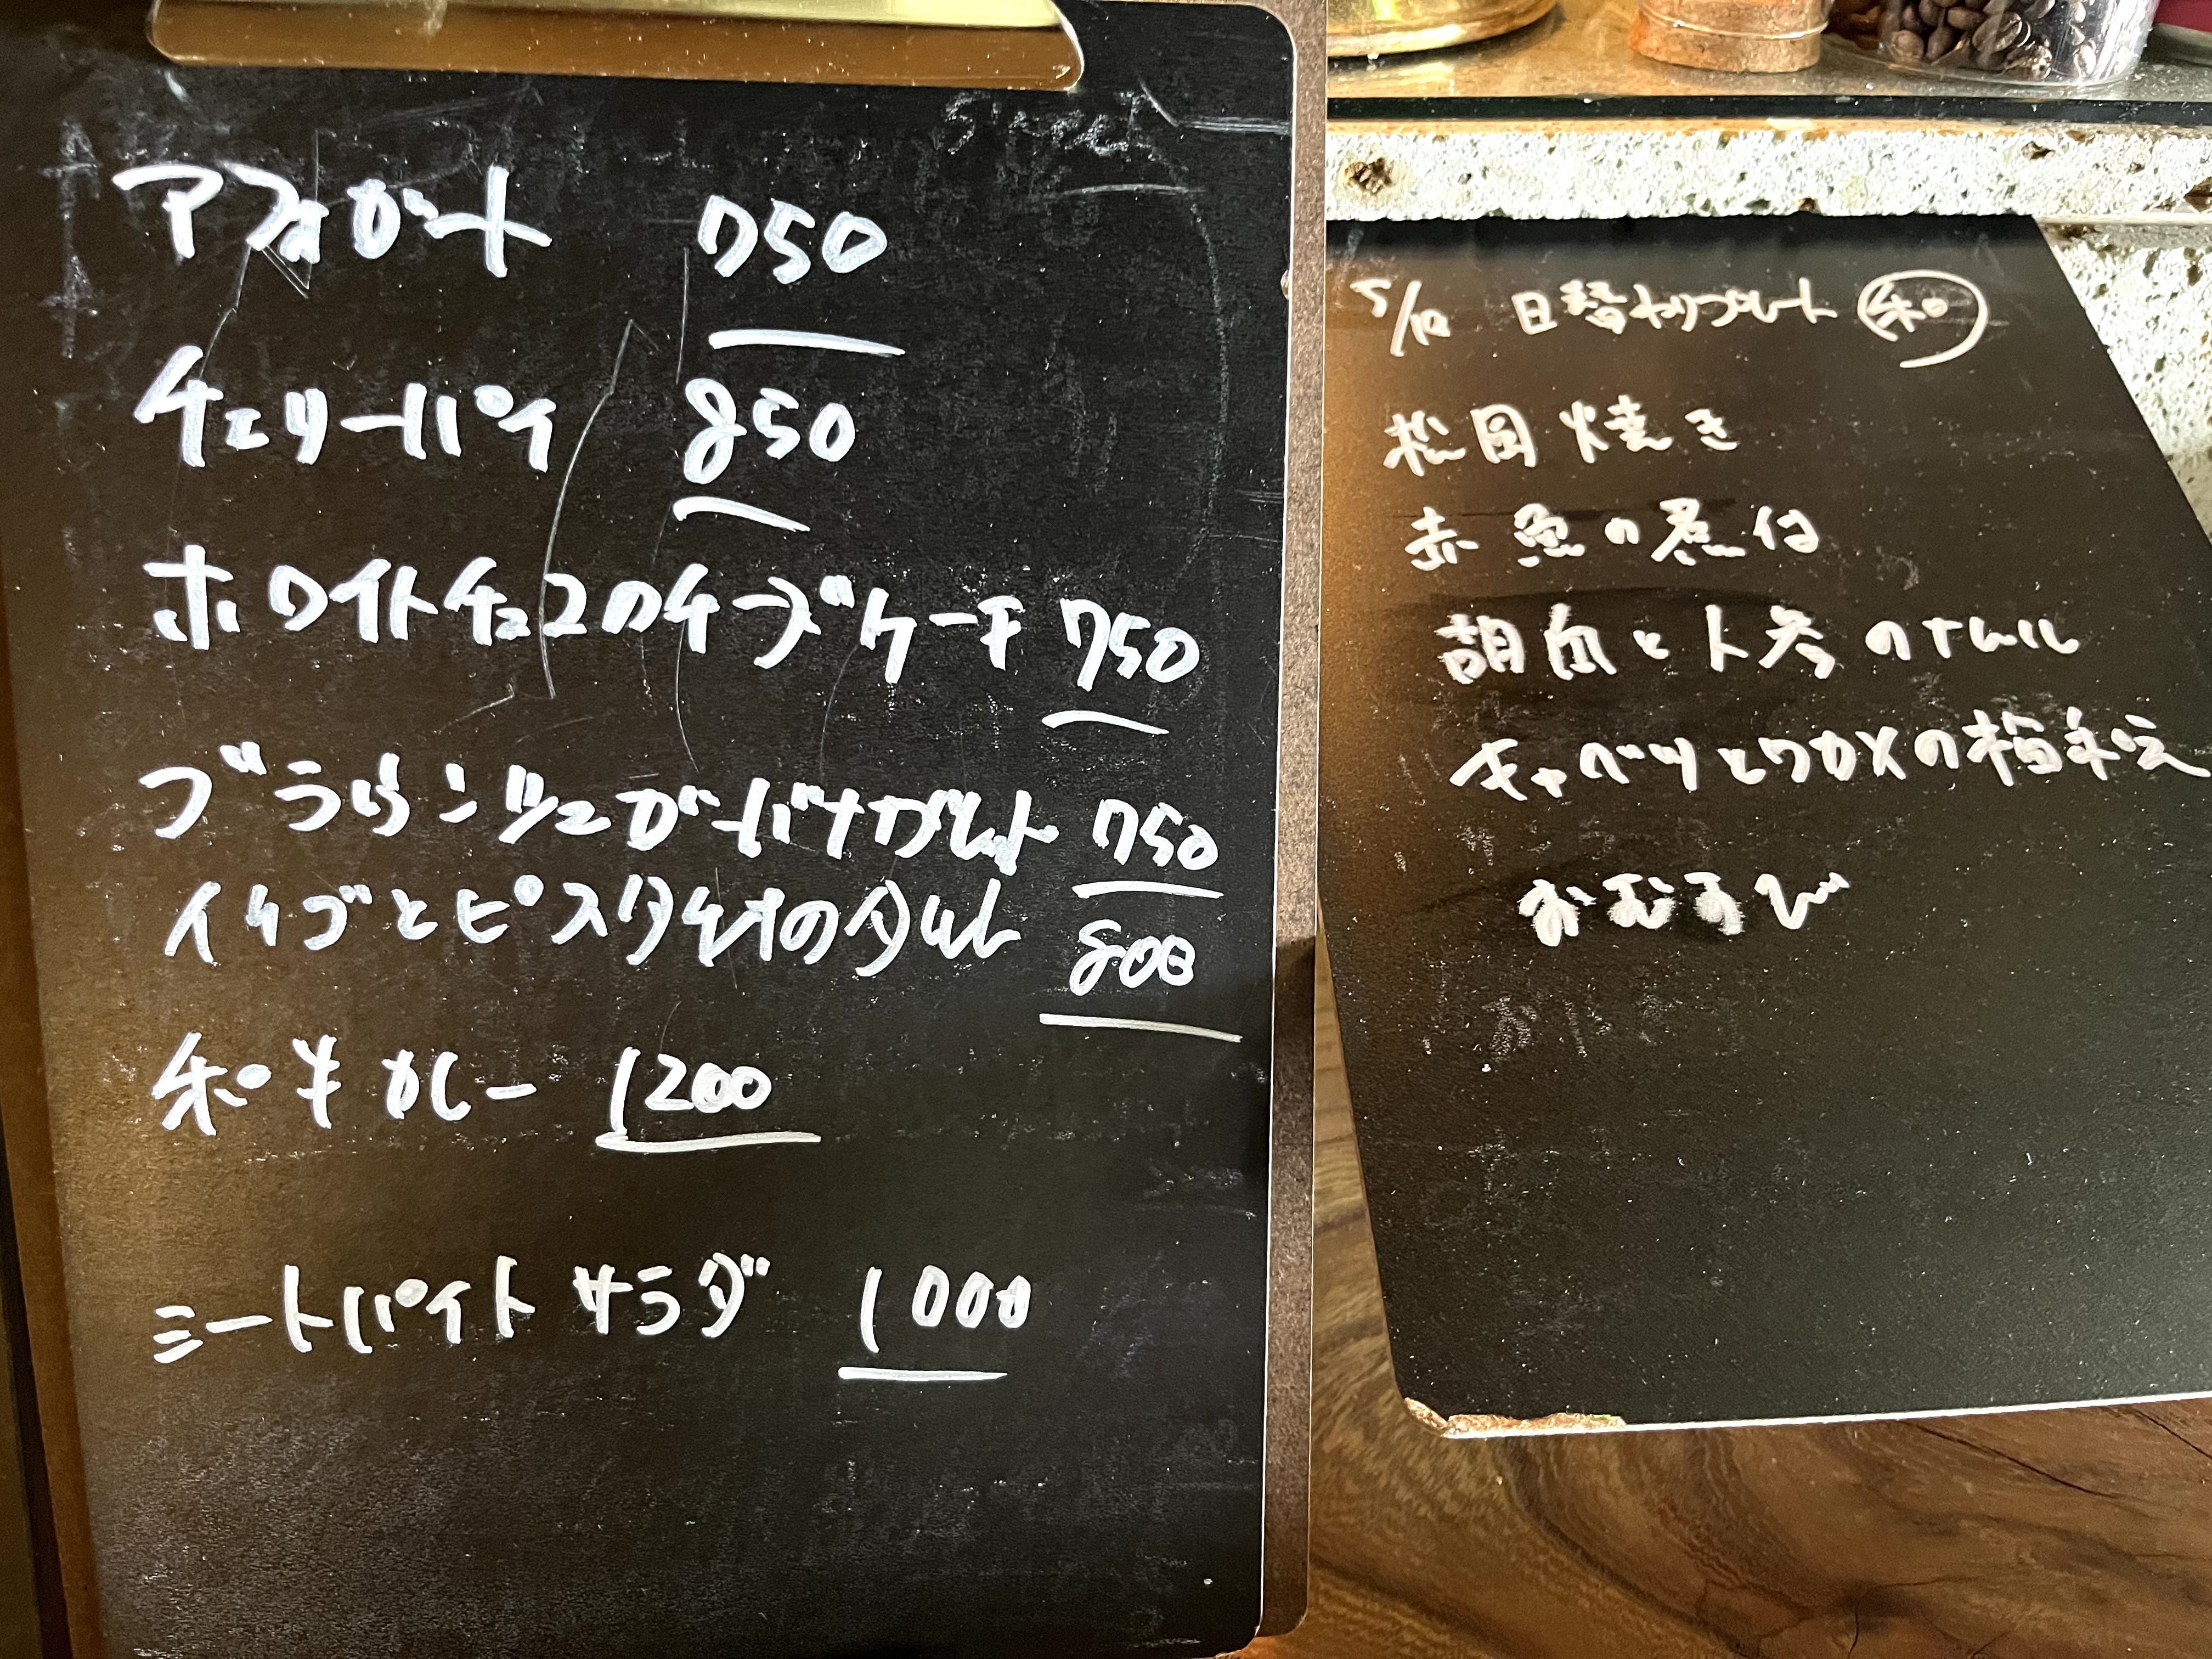 アフォガート 750
チェリーパイ 850
ホワイトチョコのチーズケーキ 750
ブラウンシュガーバナナガレット 750
イチゴとピスタチオのタルト 800
和牛カレー 1200
ミートパイトサラダ 1000
5/10 日替わりプレート 和
松風焼き
赤魚の煮付
胡瓜と人参のナムル
キャベツとワカメの梅和え
おむすび